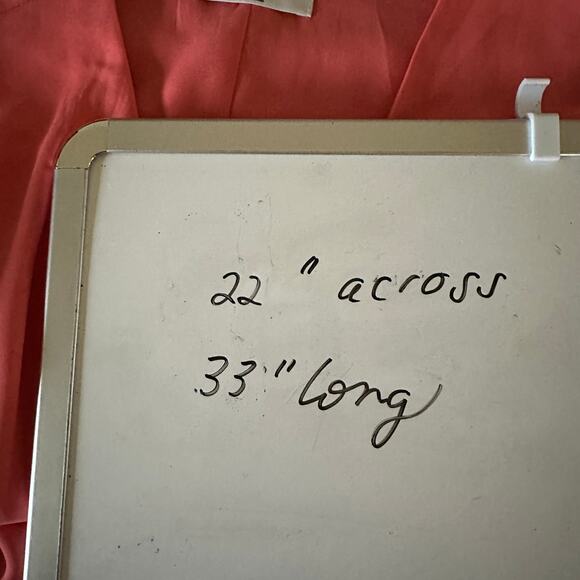 22 " across
33" long